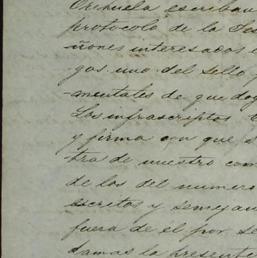 Orihuela escriban
protocolo de la Tes
ñones interesados e
gos uno del sello
amentales de que doy
Los infrascriptos
y firma con que a
tra de nuestro com
de los del numero
escretos y semejan
fuera de el por se
damos la presente